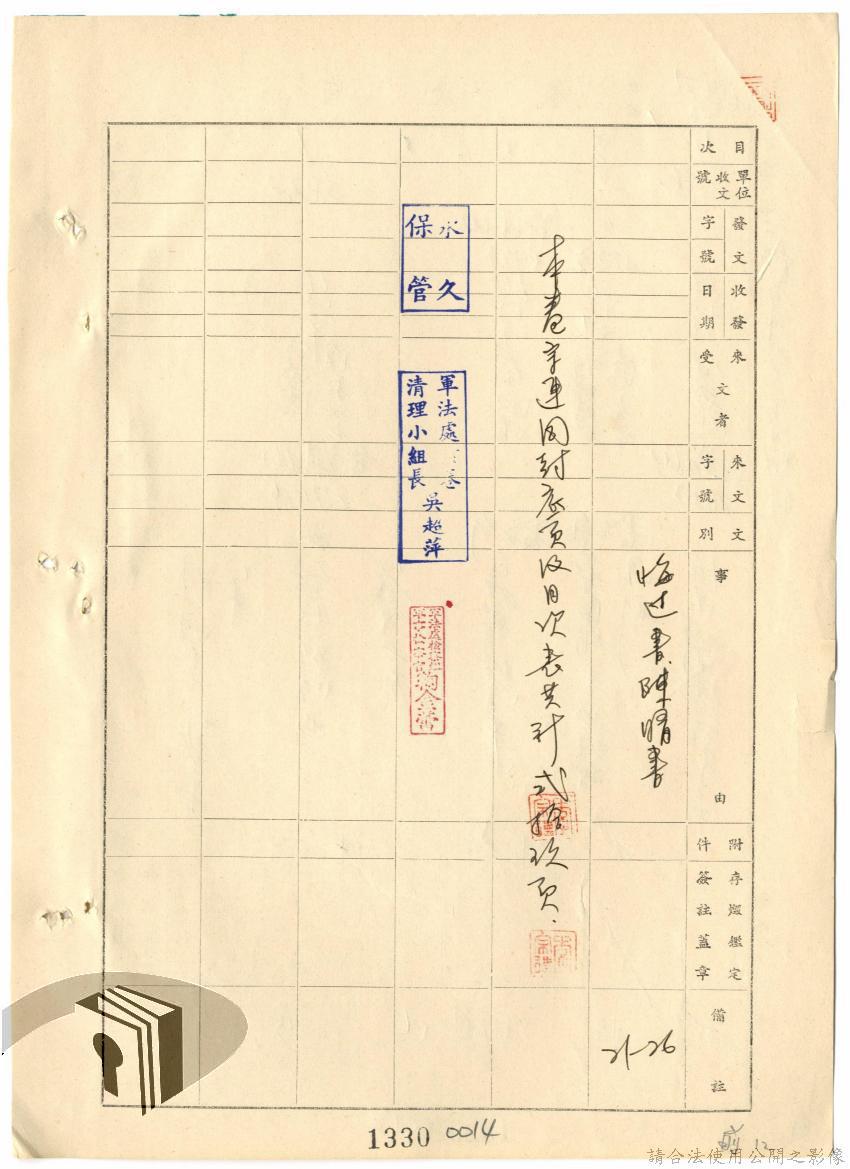 目次
單位收文號
發文字號
收發日期
來文者
受
來文字號
文別
事由
附件
存燬鑑定
簽註蓋章
備註
悔过書、陳情書
21-26
本卷宗連同封底頁及目次表共計弍拾玖頁.
永久
保管
軍法處
清理小組長
吳超萍
1330 0014
請合法使用公開之影像